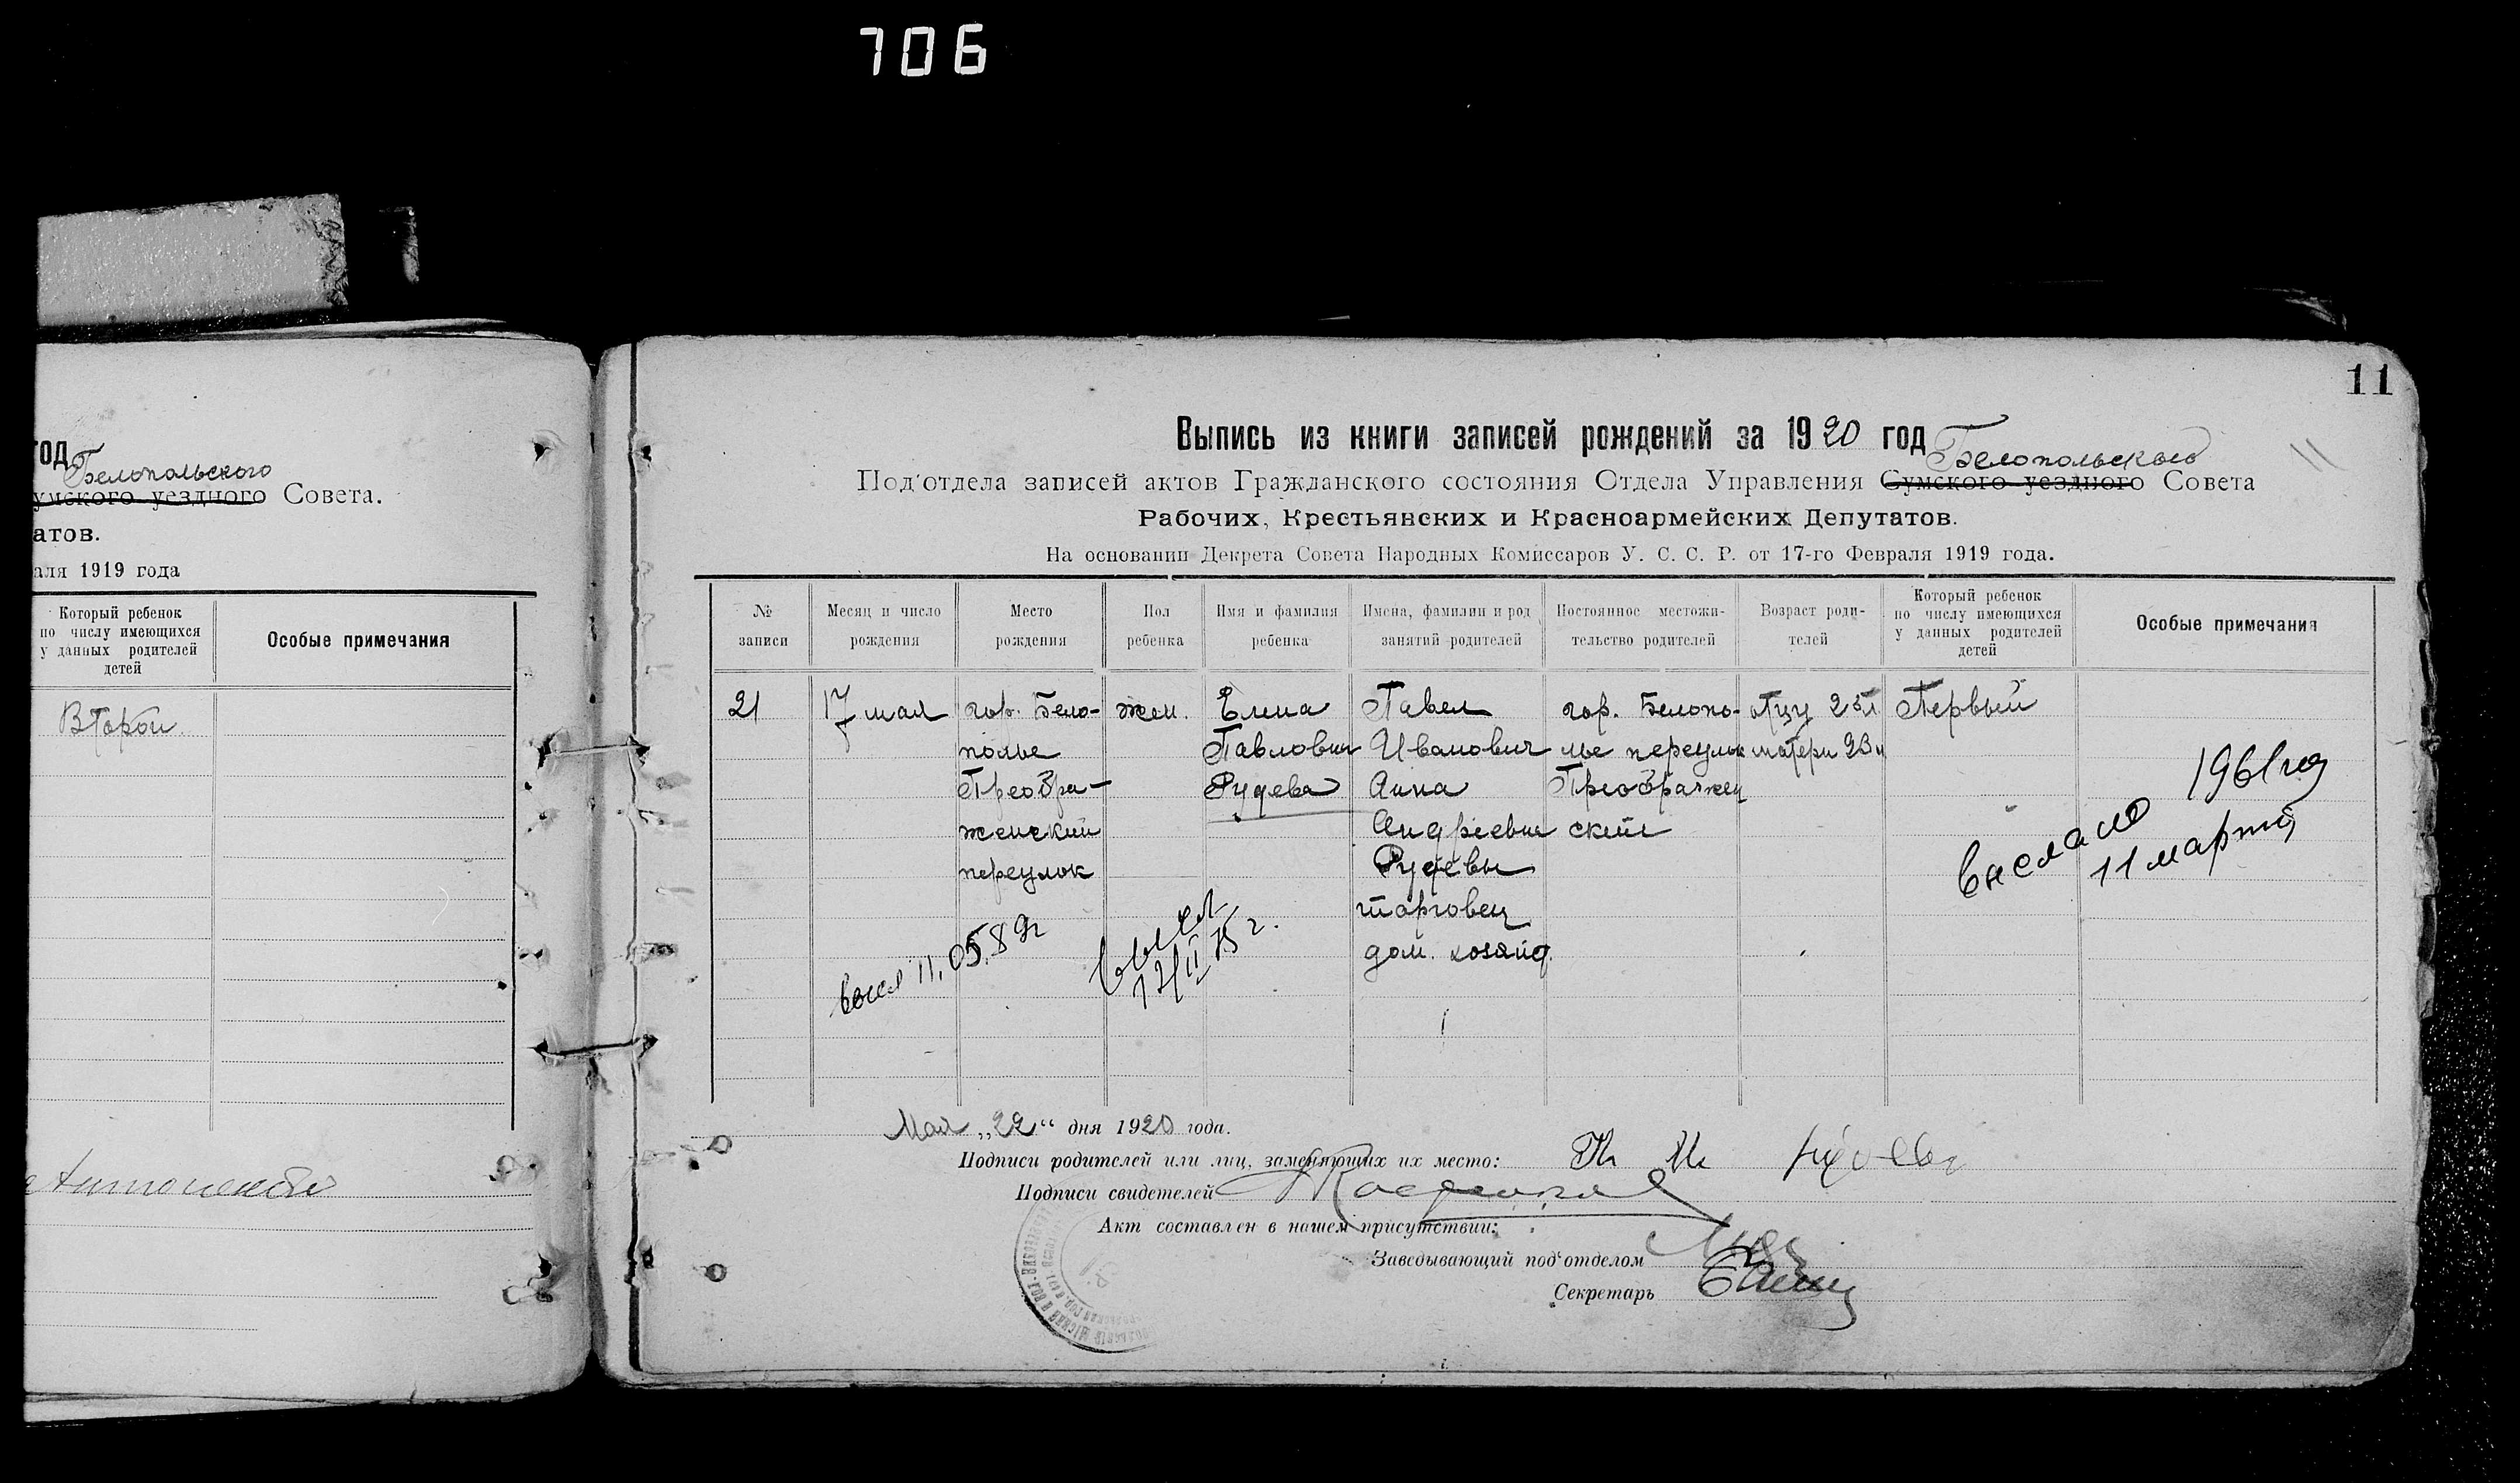 706
год
Белопольского
умского уездного Совета.
атов.
аля 1919 года
Который ребенок
по числу имеющихся
у данных родителей
детей
Особые примечания
Второй
11
Выпись из книги записей рождений за 1920 год
Белопольского
11
Под'отдела записей актов Гражданского состояния Отдела Управления Сумского уездного Совета
Рабочих, Крестьянских и Красноармейских Депутатов.
На основании Декрета Совета Народных Комиссаров У. С. С. Р. от 17-го Февраля 1919 года.
№
записи
Месяц и число
рождения
Место
рождения
Пол
ребенка
Имя и фамилия
ребенка
Имена, фамилии и род
занятий родителей
Постоянное местожи-
тельство родителей
Возраст роди-
телей
Который ребенок
по числу имеющихся
у данных родителей
детей
Особые примечания
21
17 мая
гор. Бело-
полье
Преобра-
женский
переулок
жен.
Елена
Павловна
Рудева
Павел
Иванович
Анна
Андреевна
Рудевы
торговец
дом. хозяйд.
гор. Белопо-
лье переулок
Преображен
ский
отцу 25л
матери 23л
Первый
выслано
1961 год
11 марта
высл 11.05.89г
высл
12/II 75 г.
Мая „22“ дня 1920 года.
Подписи родителей или лиц, заменяющих их место:
Подписи свидетелей
Акт составлен в нашем присутствии:
Заведывающий под'отделом
Секретарь